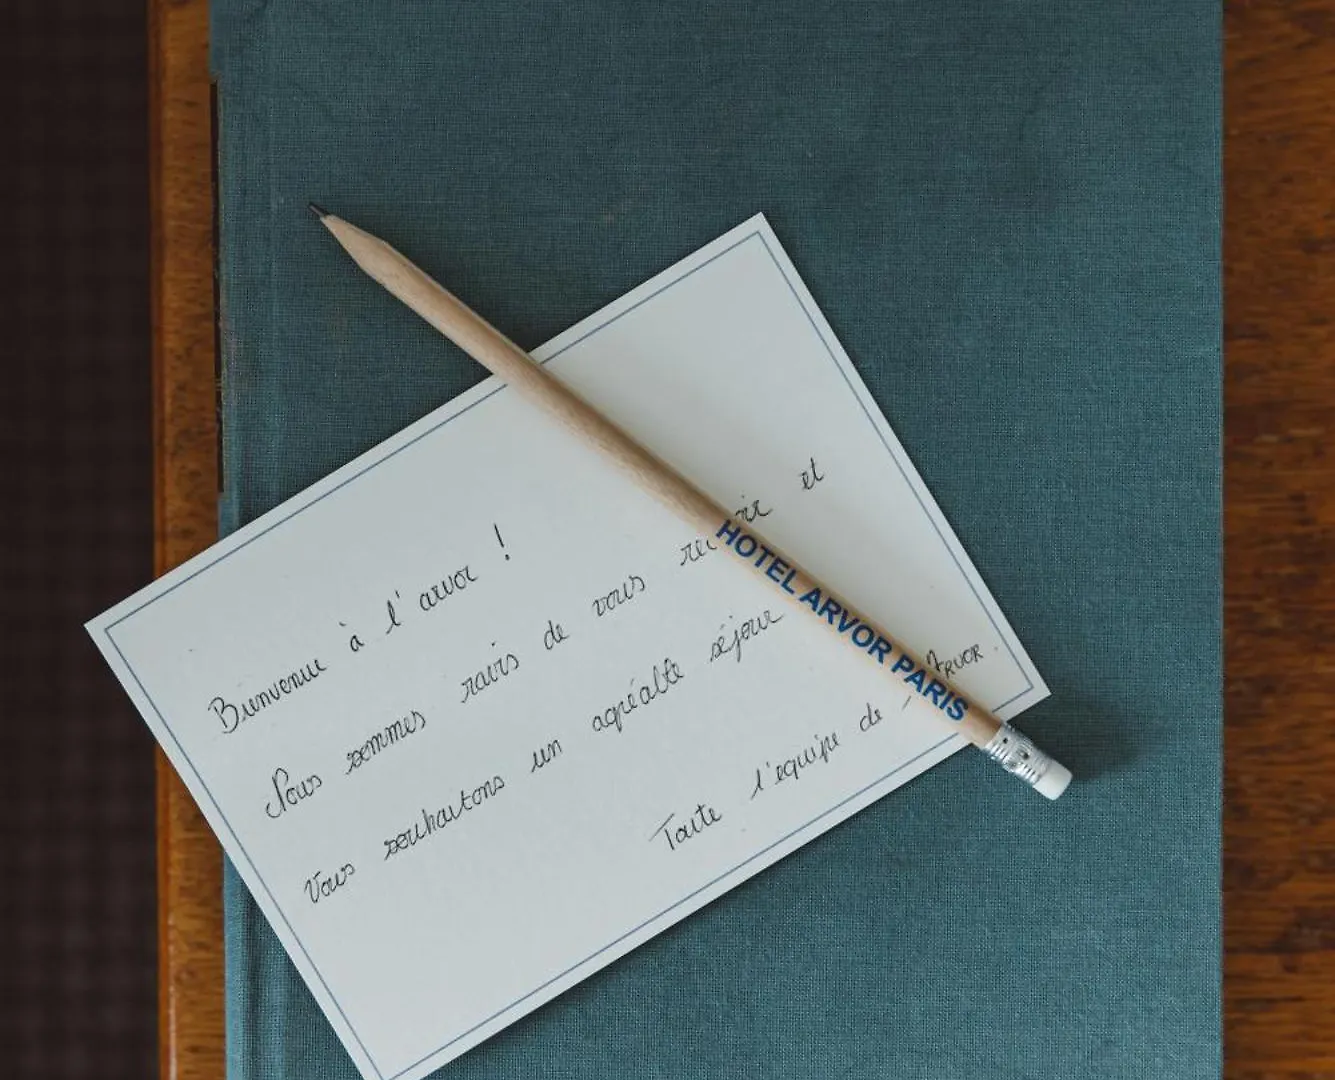 Bienvenue à l'arvor !
Nous sommes ravis de vous recevoir et
Vous souhaitons un agréable séjour
Toute l'équipe de l'ARVOR.
HOTEL ARVOR PARIS